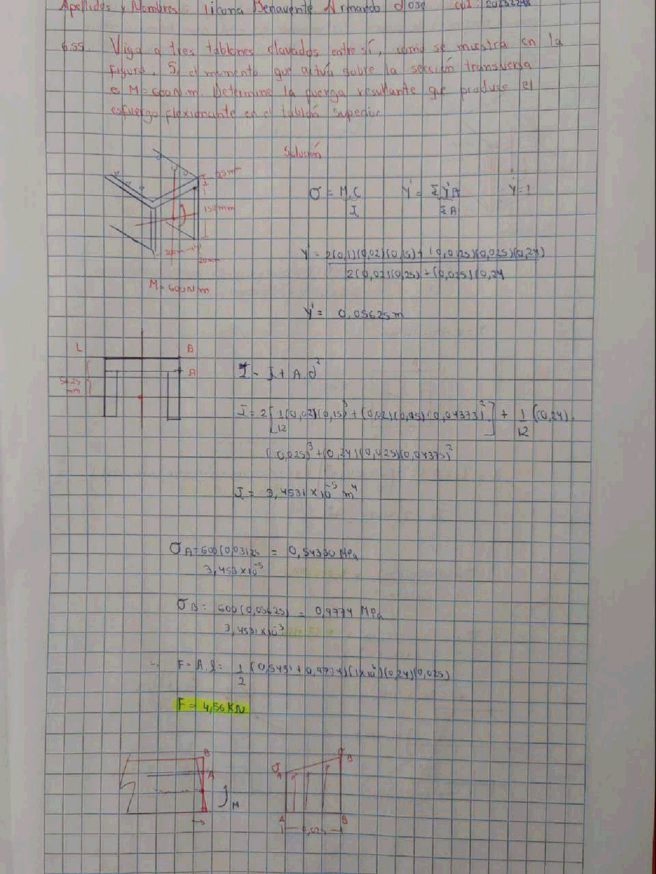 Apellidos y Nombres: Ticona Benavente Armando Jose
6.55. Viga a tres tablones clavados entre sí, como se muestra en la
figura. Si el momento que actúa sobre la sección transversa
es M=600N m. Determine la fuerza resultante que produce el
esfuerzo flexionante en el tablón superior
Solución
150mm
20mm
M=600N m
σ = M.C / I    Y' = Σ y'A / ΣA    Y=?
Y' = 2(0,1)(0,02)(0,15)+(0,0125)(0,025)(0,24) / 2(0,02)(0,25)+(0,025)(0,24
Y' = 0,05625m
L B
A
56,25
mm
I = I + A d²
I = 2[1/12(0,02)(0,15)³ + (0,02)(0,15)(0,04373)²] + 1/12 (0,24).
(0,025)³ + (0,24)(0,025)(0,04375)²
I = 3,4531 x10⁻⁵ m⁴
σA = 600(0,03125 / 3,453 x10⁻⁵ = 0,54330 MPa
σB = 600(0,05625) / 3,4531x10⁻⁵ = 0,9774 MPa
F = 1/2 (0,5431+0,9774)(1x10⁶)(0,24)(0,025)
F = 4,56 KN
B
A
M
σA σB
A B
0,025